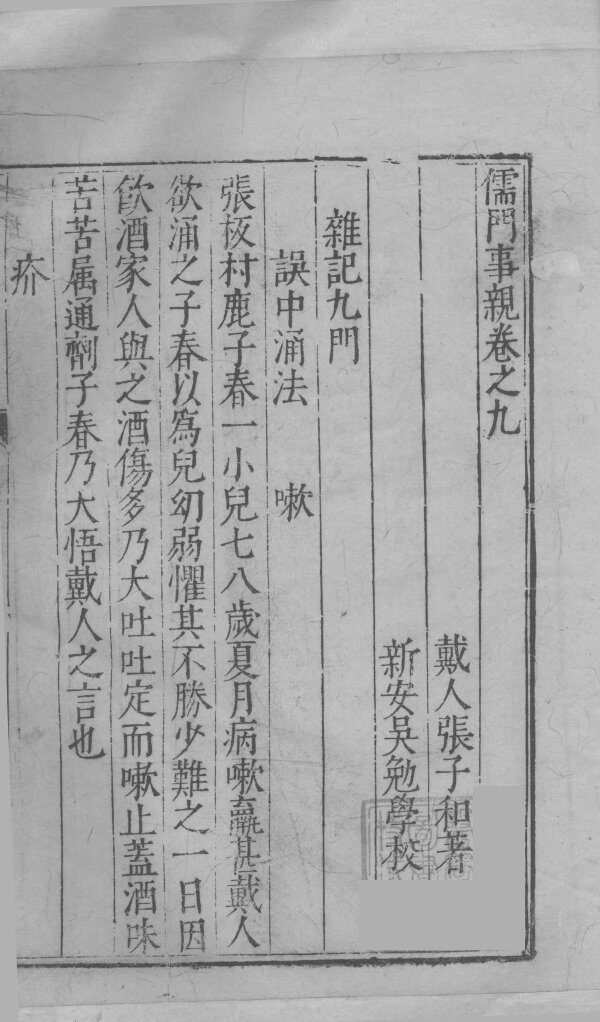 儒門事親卷之九
戴人張子和著
新安吳勉學校
雜記九門
誤中涌法 嗽
張板村鹿子春一小兒七八歲夏月病嗽羸甚戴人
欲涌之子春以爲兒幼弱懼其不勝少難之一日因
飲酒家人與之酒傷多乃大吐吐定而嗽止蓋酒味
苦苦屬通劑子春乃大悟戴人之言也
疥